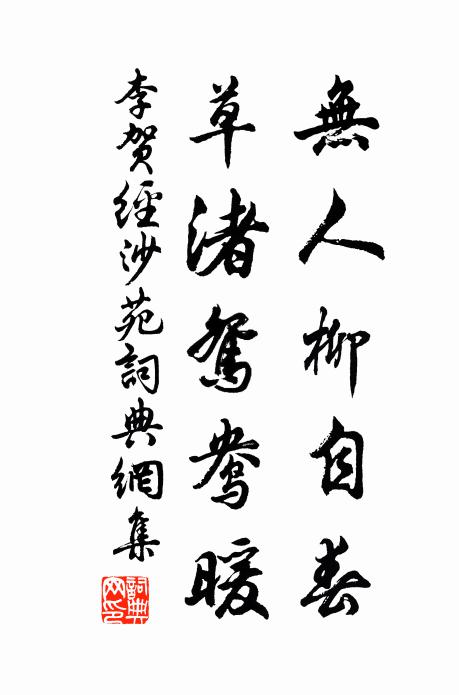 無人柳自春
草渚鴛鴦暖
李賀經沙苑詞典網集
詞典網印